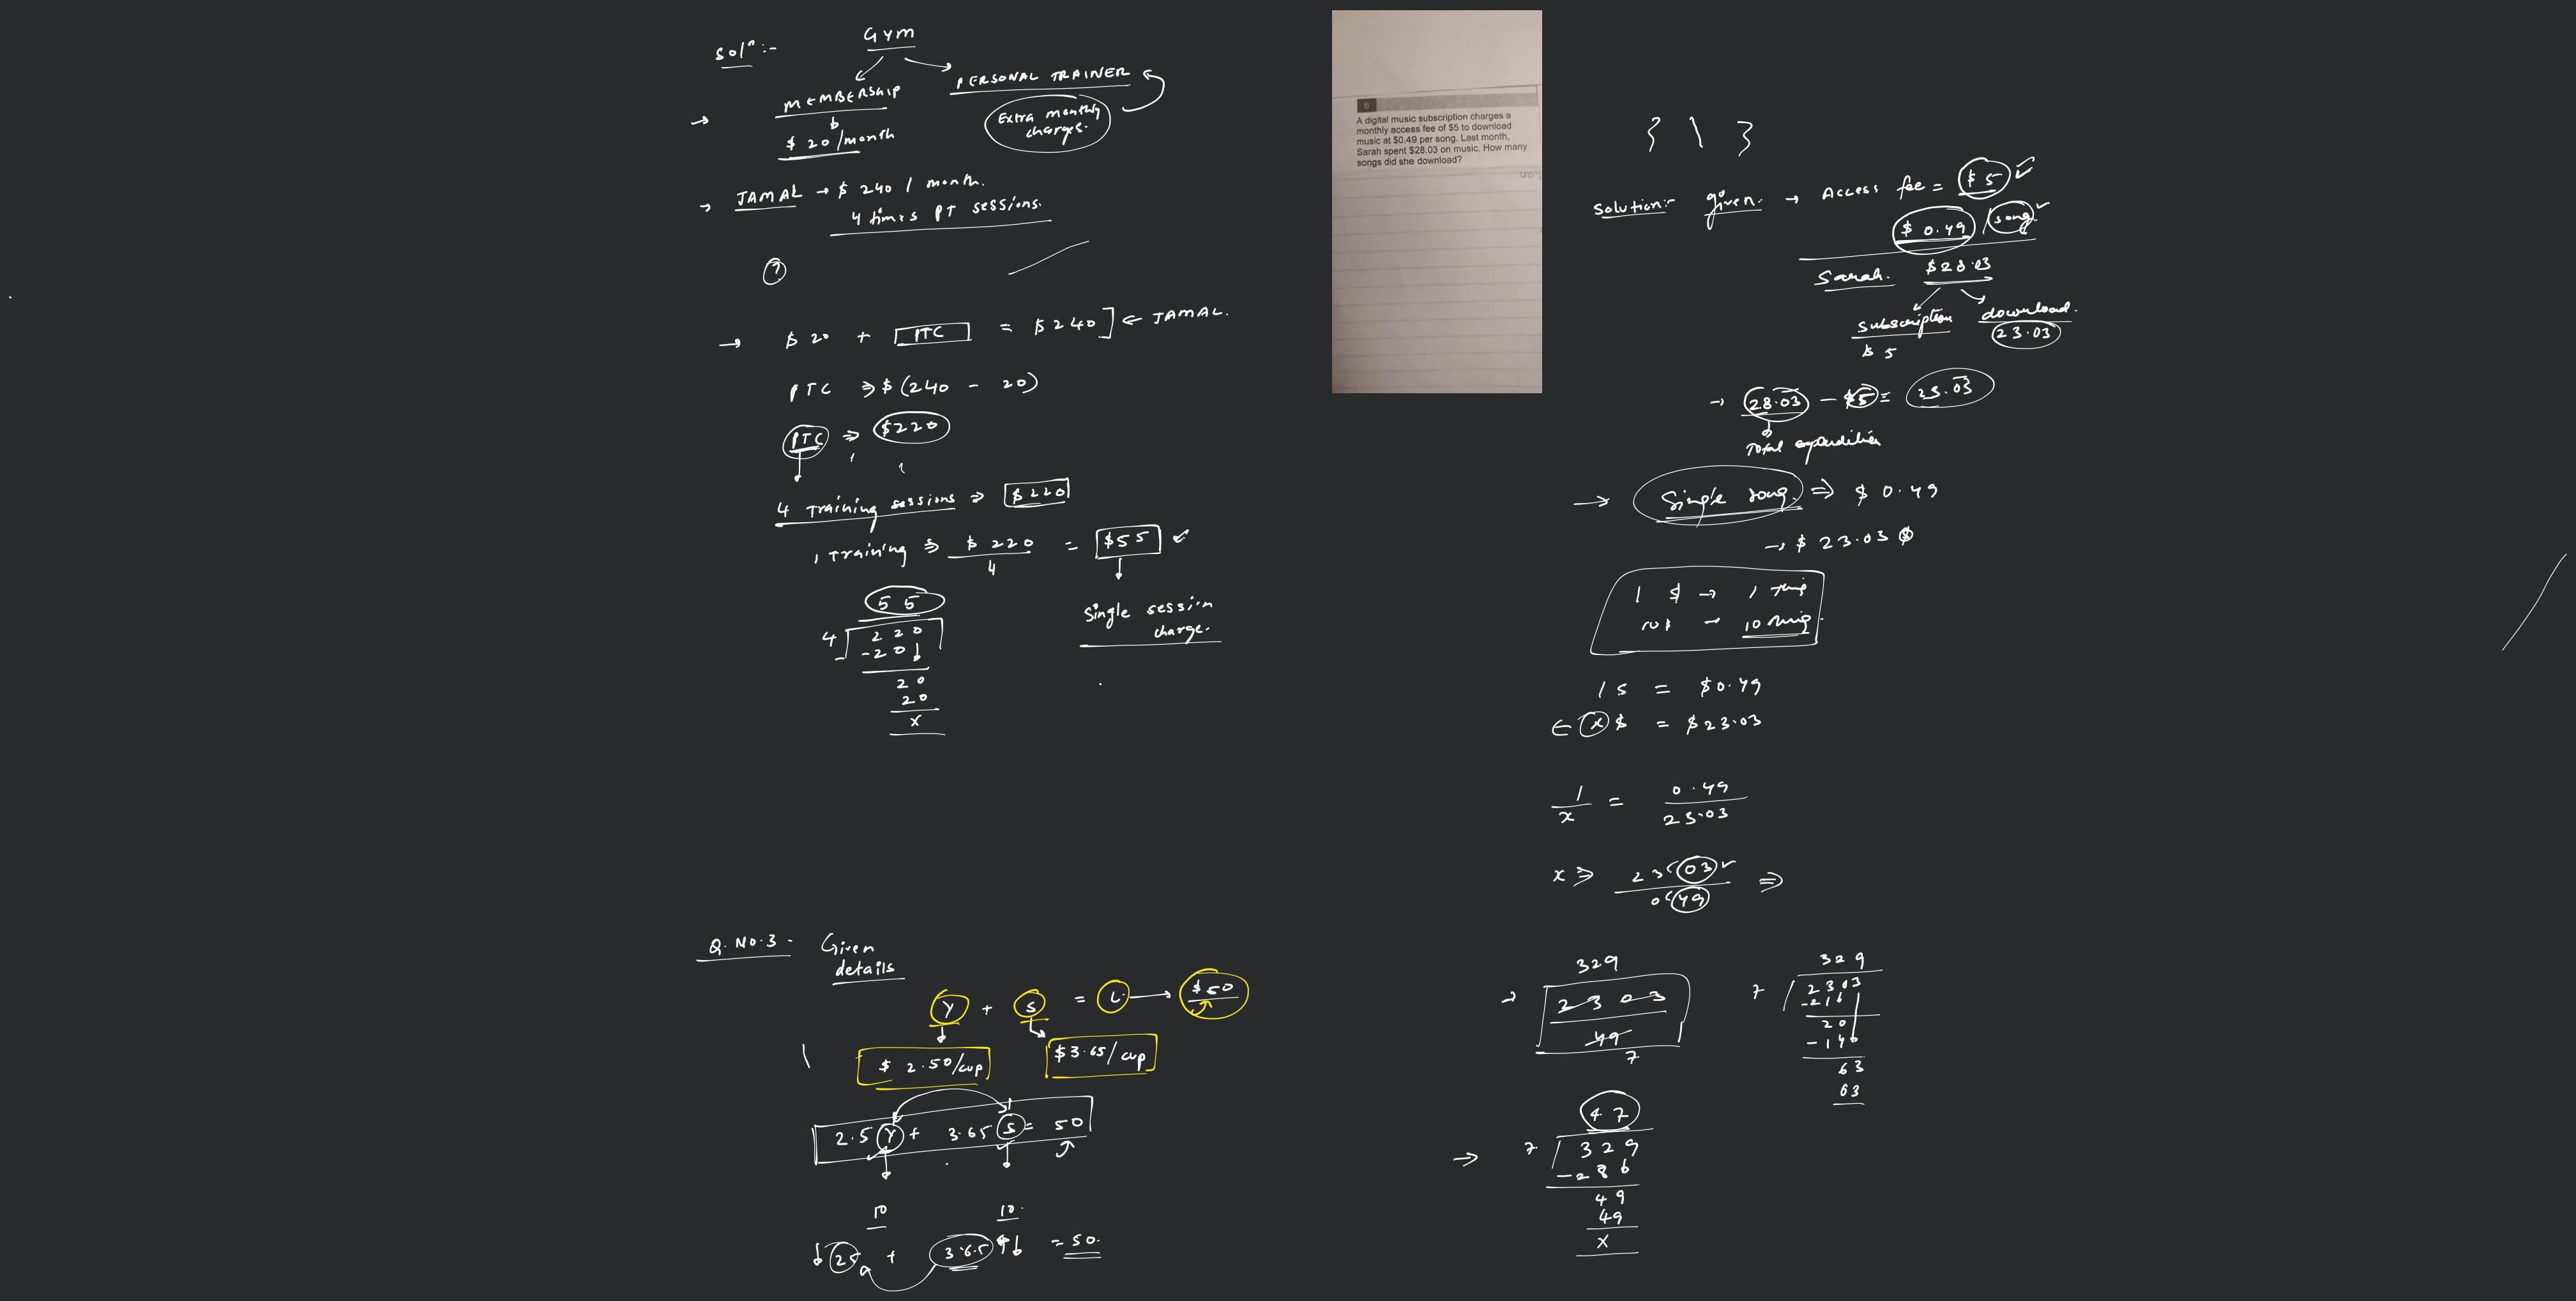 Solⁿ :-
Gym
MEMBERSHIP
PERSONAL TRAINER
→ $ 20 /month
Extra monthly
charges.
→ JAMAL → $ 240 / month.
4 times PT sessions.
?
→ $ 20 + PTC = $ 240 ] ← JAMAL.
PTC ⇒ $ (240 - 20)
PTC ⇒ $220
4 Training sessions ⇒ $220
1 Training ⇒ $ 220 / 4 = $55 ✓
Single session
charge.
5 5
4 220
- 20
20
20
x
Q. No. 3 - Given
details
Y + S = L → $50
$ 2.50/cup
$3.65/cup
2.5 Y + 3.65 S = 50
10 10.
25 + 36.5 = 50.
6
A digital music subscription charges a
monthly access fee of $5 to download
music at $0.49 per song. Last month,
Sarah spent $28.03 on music. How many
songs did she download?
{ \ }
Solution:- given. → Access fee = $5 ✓
$ 0.49 / song ✓
Sarah. $28.03
subscription download.
$ 5 23.03
→ 28.03 - $5 = 23.03
Total expenditure
→ Single song ⇒ $ 0.49
→ $ 23.03
1 $ → 1 thing
10$ → 10 thing
1 S = $0.49
x $ = $23.03
1/x = 0.49/23.03
x ⇒ 23.03/0.49 ⇒
329
→ 2303
49
7
329
7 2303
-21
20
-14
63
63
47
→ 7 329
-28
49
49
x